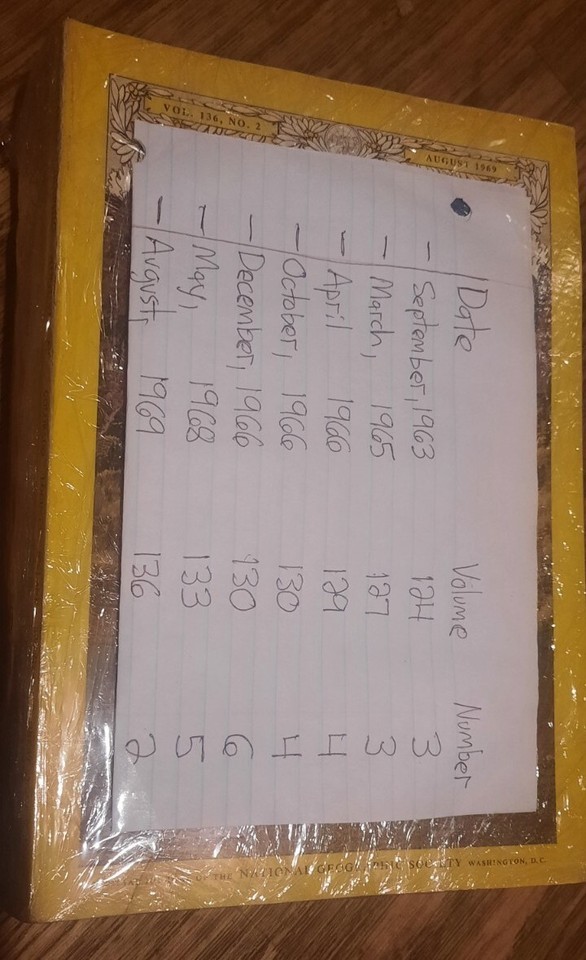 VOL. 136, NO. 2
AUGUST 1969
Date Volume Number
- September, 1963 124 3
- March, 1965 127 3
- April 1966 129 4
- October, 1966 130 4
- December, 1966 130 6
- May, 1968 133 5
- August, 1969 136 2
OF THE NATIONAL GEOGRAPHIC SOCIETY WASHINGTON, D.C.